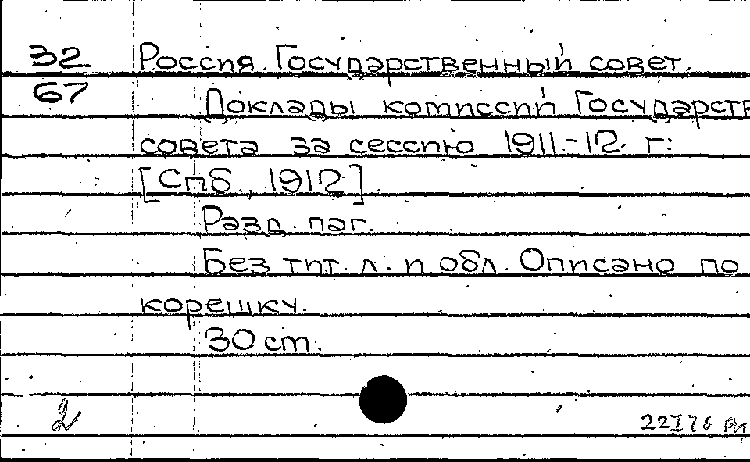 32 Россия. Государственный совет.
67 Доклады комиссий Государств
совета за сессию 1911-12 г:
[СПб, 1912]
Разд. паг.
Без тит. л. и обл. Описано по
корешку.
30 ст.
2